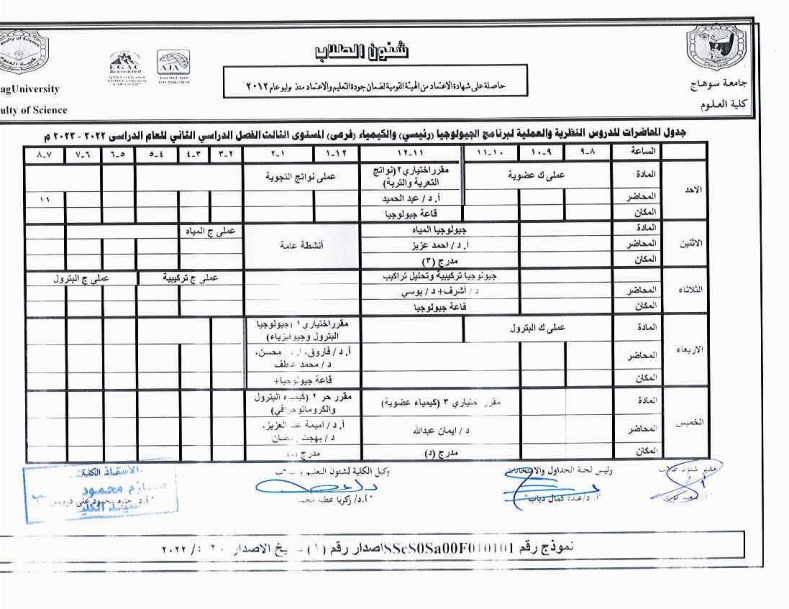 شئون الطلاب
حاصلة على شهادة الاعتماد من الهيئة القومية لضمان جودة التعليم والاعتماد منذ يوليو عام ٢٠١٢
جامعة سوهاج
كلية العلوم
agUniversity
ulty of Science
AJA
جدول المحاضرات للدروس النظرية والعملية لبرنامج الجيولوجيا (رئيسي) والكيمياء (فرعى) المستوى الثالث الفصل الدراسي الثاني للعام الدراسى ٢٠٢٢ - ٢٠٢٣ م
الساعة ٨-٩ ٩-١٠ ١٠-١١ ١١-١٢ ١٢-١ ١-٢ ٢-٣ ٣-٤ ٤-٥ ٥-٦ ٦-٧ ٧-٨
الاحد
المادة عملى ك عضوية مقرر اختياري ٢ (نواتج التعرية والتربة) عملى نواتج التجوية
المحاضر أ.د / عبد الحميد ١١
المكان قاعة جيولوجيا
الاثنين
المادة جيولوجيا المياه أنشطة عامة عملى ج المياه
المحاضر أ.د / احمد عزيز
المكان مدرج (٣)
الثلاثاء
المادة جيولوجيا تركيبية وتحليل تراكيب عملى ج تركيبية عملى ج البترول
المحاضر د / أشرف + د / بوسي
المكان قاعة جيولوجيا
الاربعاء
المادة عملى ك البترول مقرر اختياري ١ (جيولوجيا البترول وجيوفيزياء)
المحاضر أ.د / فاروق، محسن، د / محمد
المكان قاعة جيولوجيا+
الخميس
المادة مقرر اختياري ٣ (كيمياء عضوية) مقرر حر ٢ (كيمياء البترول والكروماتوجرافي)
المحاضر د / ايمان عبدالله أ.د / أميمة عبد العزيز، د / بهجت رمضان
المكان مدرج (د) مدرج
مدير شئون طلاب رئيس لجنة الجداول والامتحانات وكيل الكلية لشئون التعليم و طلاب
أ.د/عبده كمال دياب أ.د/ زكريا
حازم محمود
عميد الكلية
نموذج رقم SScS0Sa00F010101 اصدار رقم (١) تاريخ الاصدار ٢٠٢٢